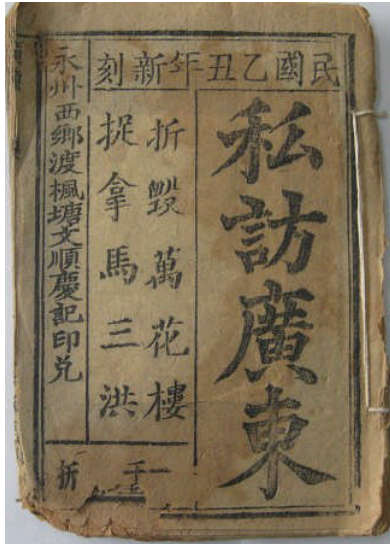 民國乙丑年新刻
私訪廣東
折毀萬花樓
捉拿馬三洪
永州西鄉渡楓塘文順慶記印兑
折